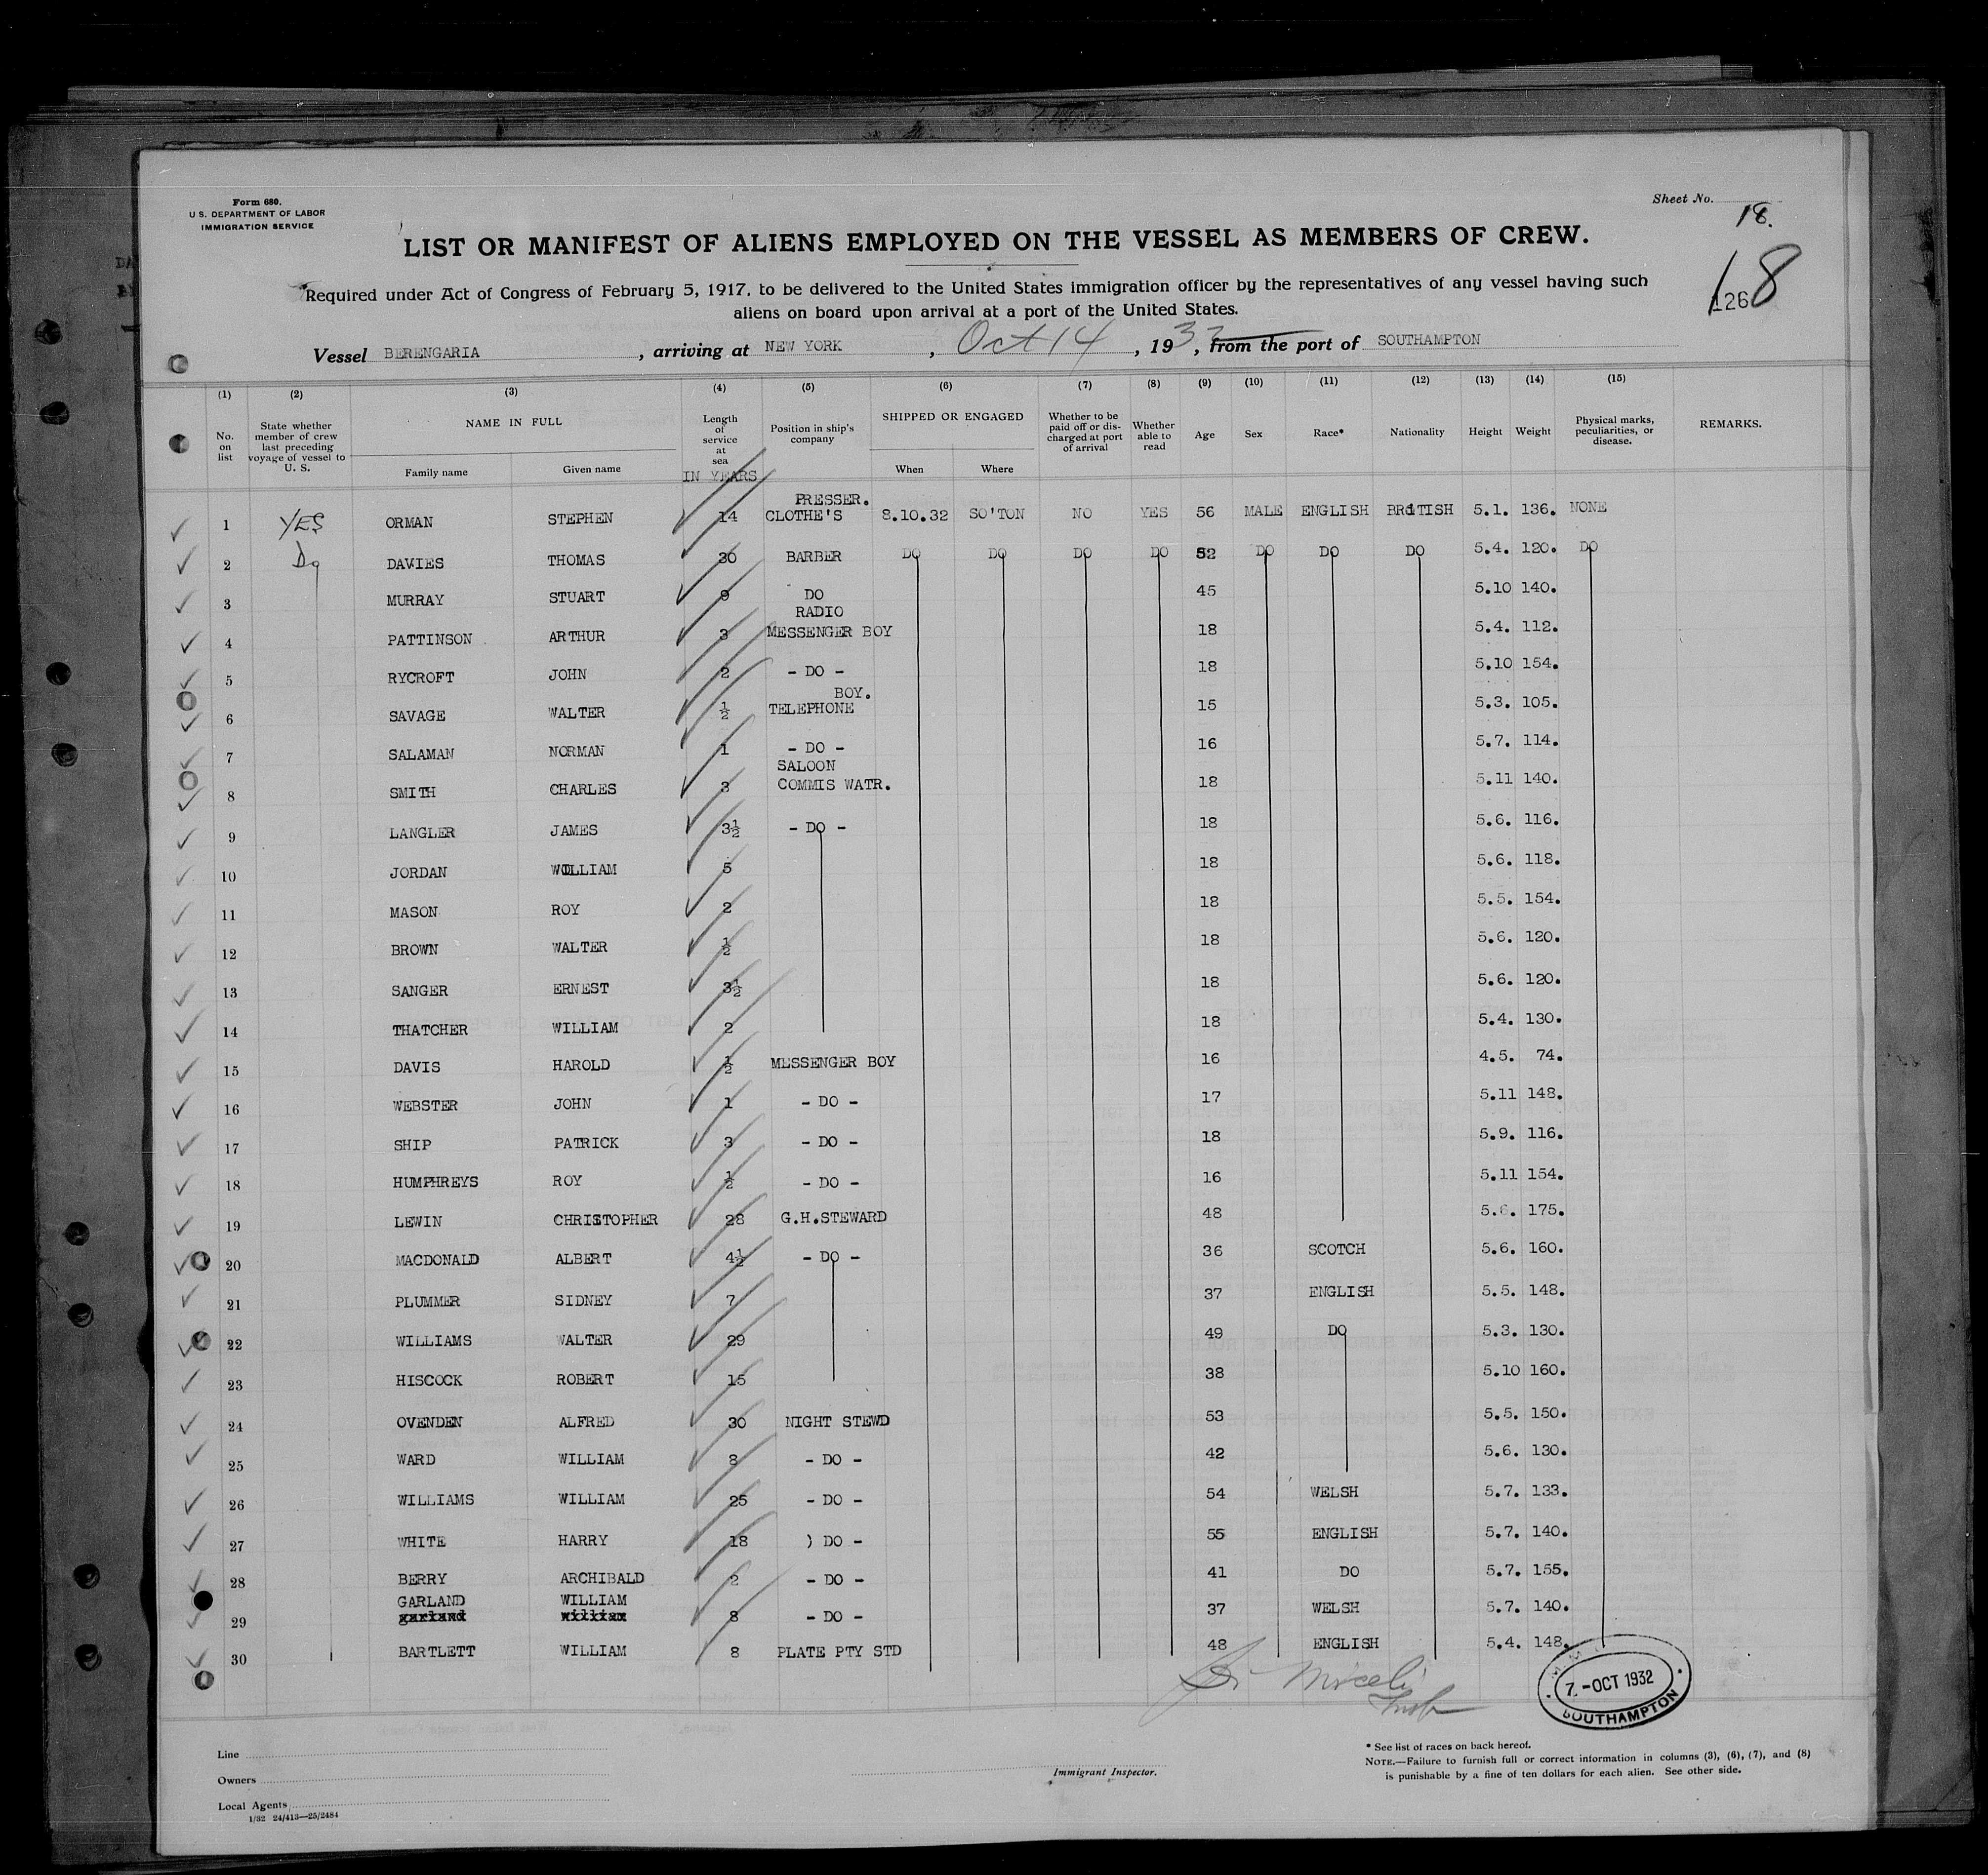 Form 680.
U.S. DEPARTMENT OF LABOR
IMMIGRATION SERVICE
Sheet No. 18.
LIST OR MANIFEST OF ALIENS EMPLOYED ON THE VESSEL AS MEMBERS OF CREW.
18
126
Required under Act of Congress of February 5, 1917, to be delivered to the United States immigration officer by the representatives of any vessel having such
aliens on board upon arrival at a port of the United States.
Vessel BERENGARIA, arriving at NEW YORK, Oct 14, 1932, from the port of SOUTHAMPTON
(1) (2) (3) (4) (5) (6) (7) (8) (9) (10) (11) (12) (13) (14) (15)
No. on list State whether member of crew last preceding voyage of vessel to U. S. NAME IN FULL Family name Given name Length of service at sea IN YEARS Position in ship's company SHIPPED OR ENGAGED When Where Whether to be paid off or discharged at port of arrival Whether able to read Age Sex Race* Nationality Height Weight Physical marks, peculiarities, or disease. REMARKS.
PRESSER.
1 YES ORMAN STEPHEN 14 CLOTHE'S 8.10.32 SO'TON NO YES 56 MALE ENGLISH BRITISH 5.1. 136. NONE
2 Do DAVIES THOMAS 30 BARBER DO DO DO DO 52 DO DO DO 5.4. 120. DO
3 MURRAY STUART 9 DO 45 5.10 140.
RADIO
4 PATTINSON ARTHUR 3 MESSENGER BOY 18 5.4. 112.
5 RYCROFT JOHN 2 - DO - 18 5.10 154.
BOY.
6 SAVAGE WALTER ½ TELEPHONE 15 5.3. 105.
7 SALAMAN NORMAN 1 - DO - 16 5.7. 114.
SALOON
8 SMITH CHARLES 3 COMMIS WATR. 18 5.11 140.
9 LANGLER JAMES 3½ - DO - 18 5.6. 116.
10 JORDAN WILLIAM 5 18 5.6. 118.
11 MASON ROY 2 18 5.5. 154.
12 BROWN WALTER ½ 18 5.6. 120.
13 SANGER ERNEST 3½ 18 5.6. 120.
14 THATCHER WILLIAM 2 18 5.4. 130.
15 DAVIS HAROLD ½ MESSENGER BOY 16 4.5. 74.
16 WEBSTER JOHN 1 - DO - 17 5.11 148.
17 SHIP PATRICK 3 - DO - 18 5.9. 116.
18 HUMPHREYS ROY ½ - DO - 16 5.11 154.
19 LEWIN CHRISTOPHER 28 G.H.STEWARD 48 5.6. 175.
20 MACDONALD ALBERT 4½ - DO - 36 SCOTCH 5.6. 160.
21 PLUMMER SIDNEY 7 37 ENGLISH 5.5. 148.
22 WILLIAMS WALTER 29 49 DO 5.3. 130.
23 HISCOCK ROBERT 15 38 5.10 160.
24 OVENDEN ALFRED 30 NIGHT STEWD 53 5.5. 150.
25 WARD WILLIAM 8 - DO - 42 5.6. 130.
26 WILLIAMS WILLIAM 25 - DO - 54 WELSH 5.7. 133.
27 WHITE HARRY 18 ) DO - 55 ENGLISH 5.7. 140.
28 BERRY ARCHIBALD 2 - DO - 41 DO 5.7. 155.
GARLAND WILLIAM
29 garland william 8 - DO - 37 WELSH 5.7. 140.
30 BARTLETT WILLIAM 8 PLATE PTY STD 48 ENGLISH 5.4. 148.
7 - OCT 1932
SOUTHAMPTON
Line
Owners
Local Agents
1/32 24/413—25/2484
Immigrant Inspector.
* See list of races on back hereof.
NOTE.—Failure to furnish full or correct information in columns (3), (6), (7), and (8)
is punishable by a fine of ten dollars for each alien. See other side.